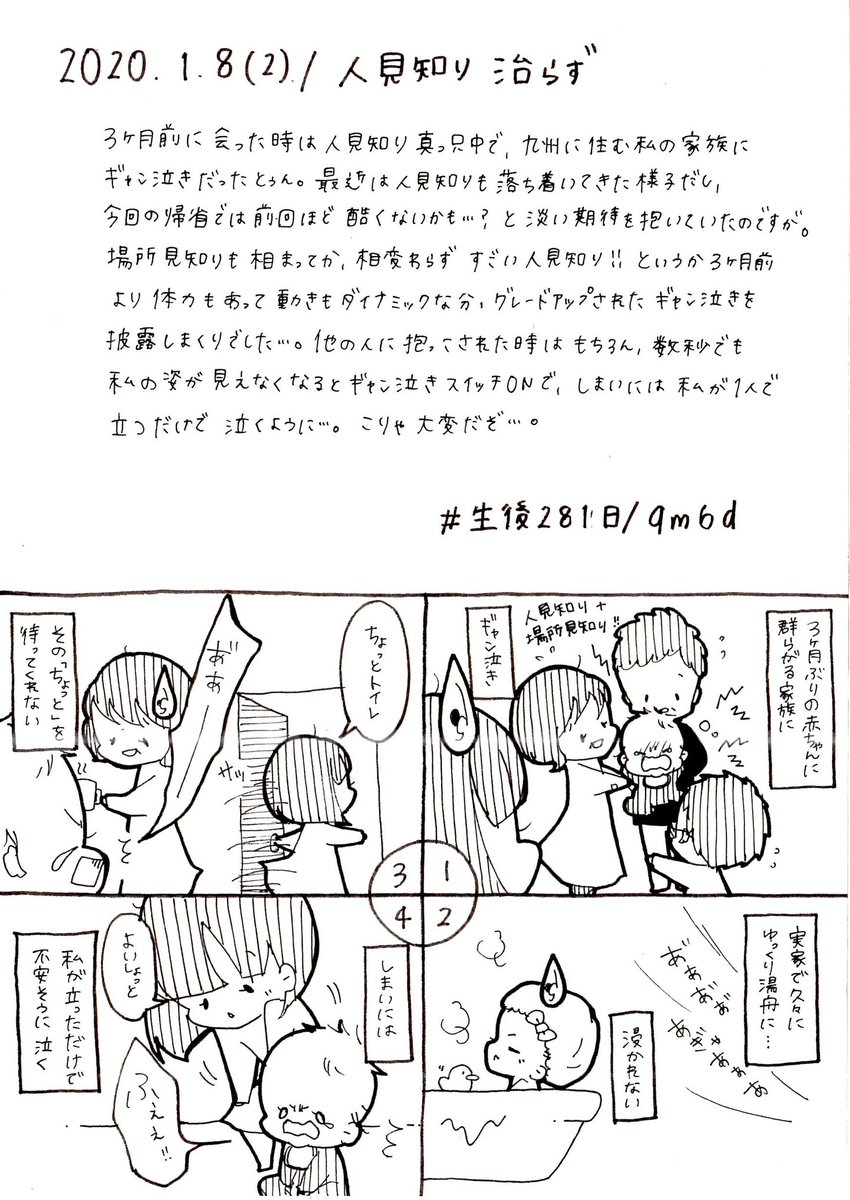 2020.1.8(2)/人見知り 治らず
3ヶ月前に会った時は人見知り真っ只中で、九州に住む私の家族に
ギャン泣きだったとぅん。最近は人見知りも落ち着いてきた様子だし、
今回の帰省では前回ほど酷くないかも…?と淡い期待を抱いていたのですが。
場所見知りも相まってか、相変わらずすごい人見知り!!というか3ヶ月前
より体力もあって動きもダイナミックな分、グレードアップされたギャン泣きを
披露しまくりでした…。他の人に抱っこされた時はもちろん、数秒でも
私の姿が見えなくなるとギャン泣きスイッチONで、しまいには私が1人で
立つだけで泣くように…。こりゃ大変だぞ…。
#生後281日/9m6d
3ヶ月ぶりの赤ちゃんに
群らがる家族に
人見知り+
場所見知り!!
ギャン泣き
1
実家で久々に
ゆっくり湯舟に…
あ゛あ゛あ゛ぁ゛
あぎゃあぁぁぁ
浸かれない
2
ちょっとトイレ
サッ
あ゛ああ
その「ちょっと」を
待ってくれない
3
しまいには
よいしょっと
ふぇぇ!!
私が立っただけで
不安そうに泣く
4